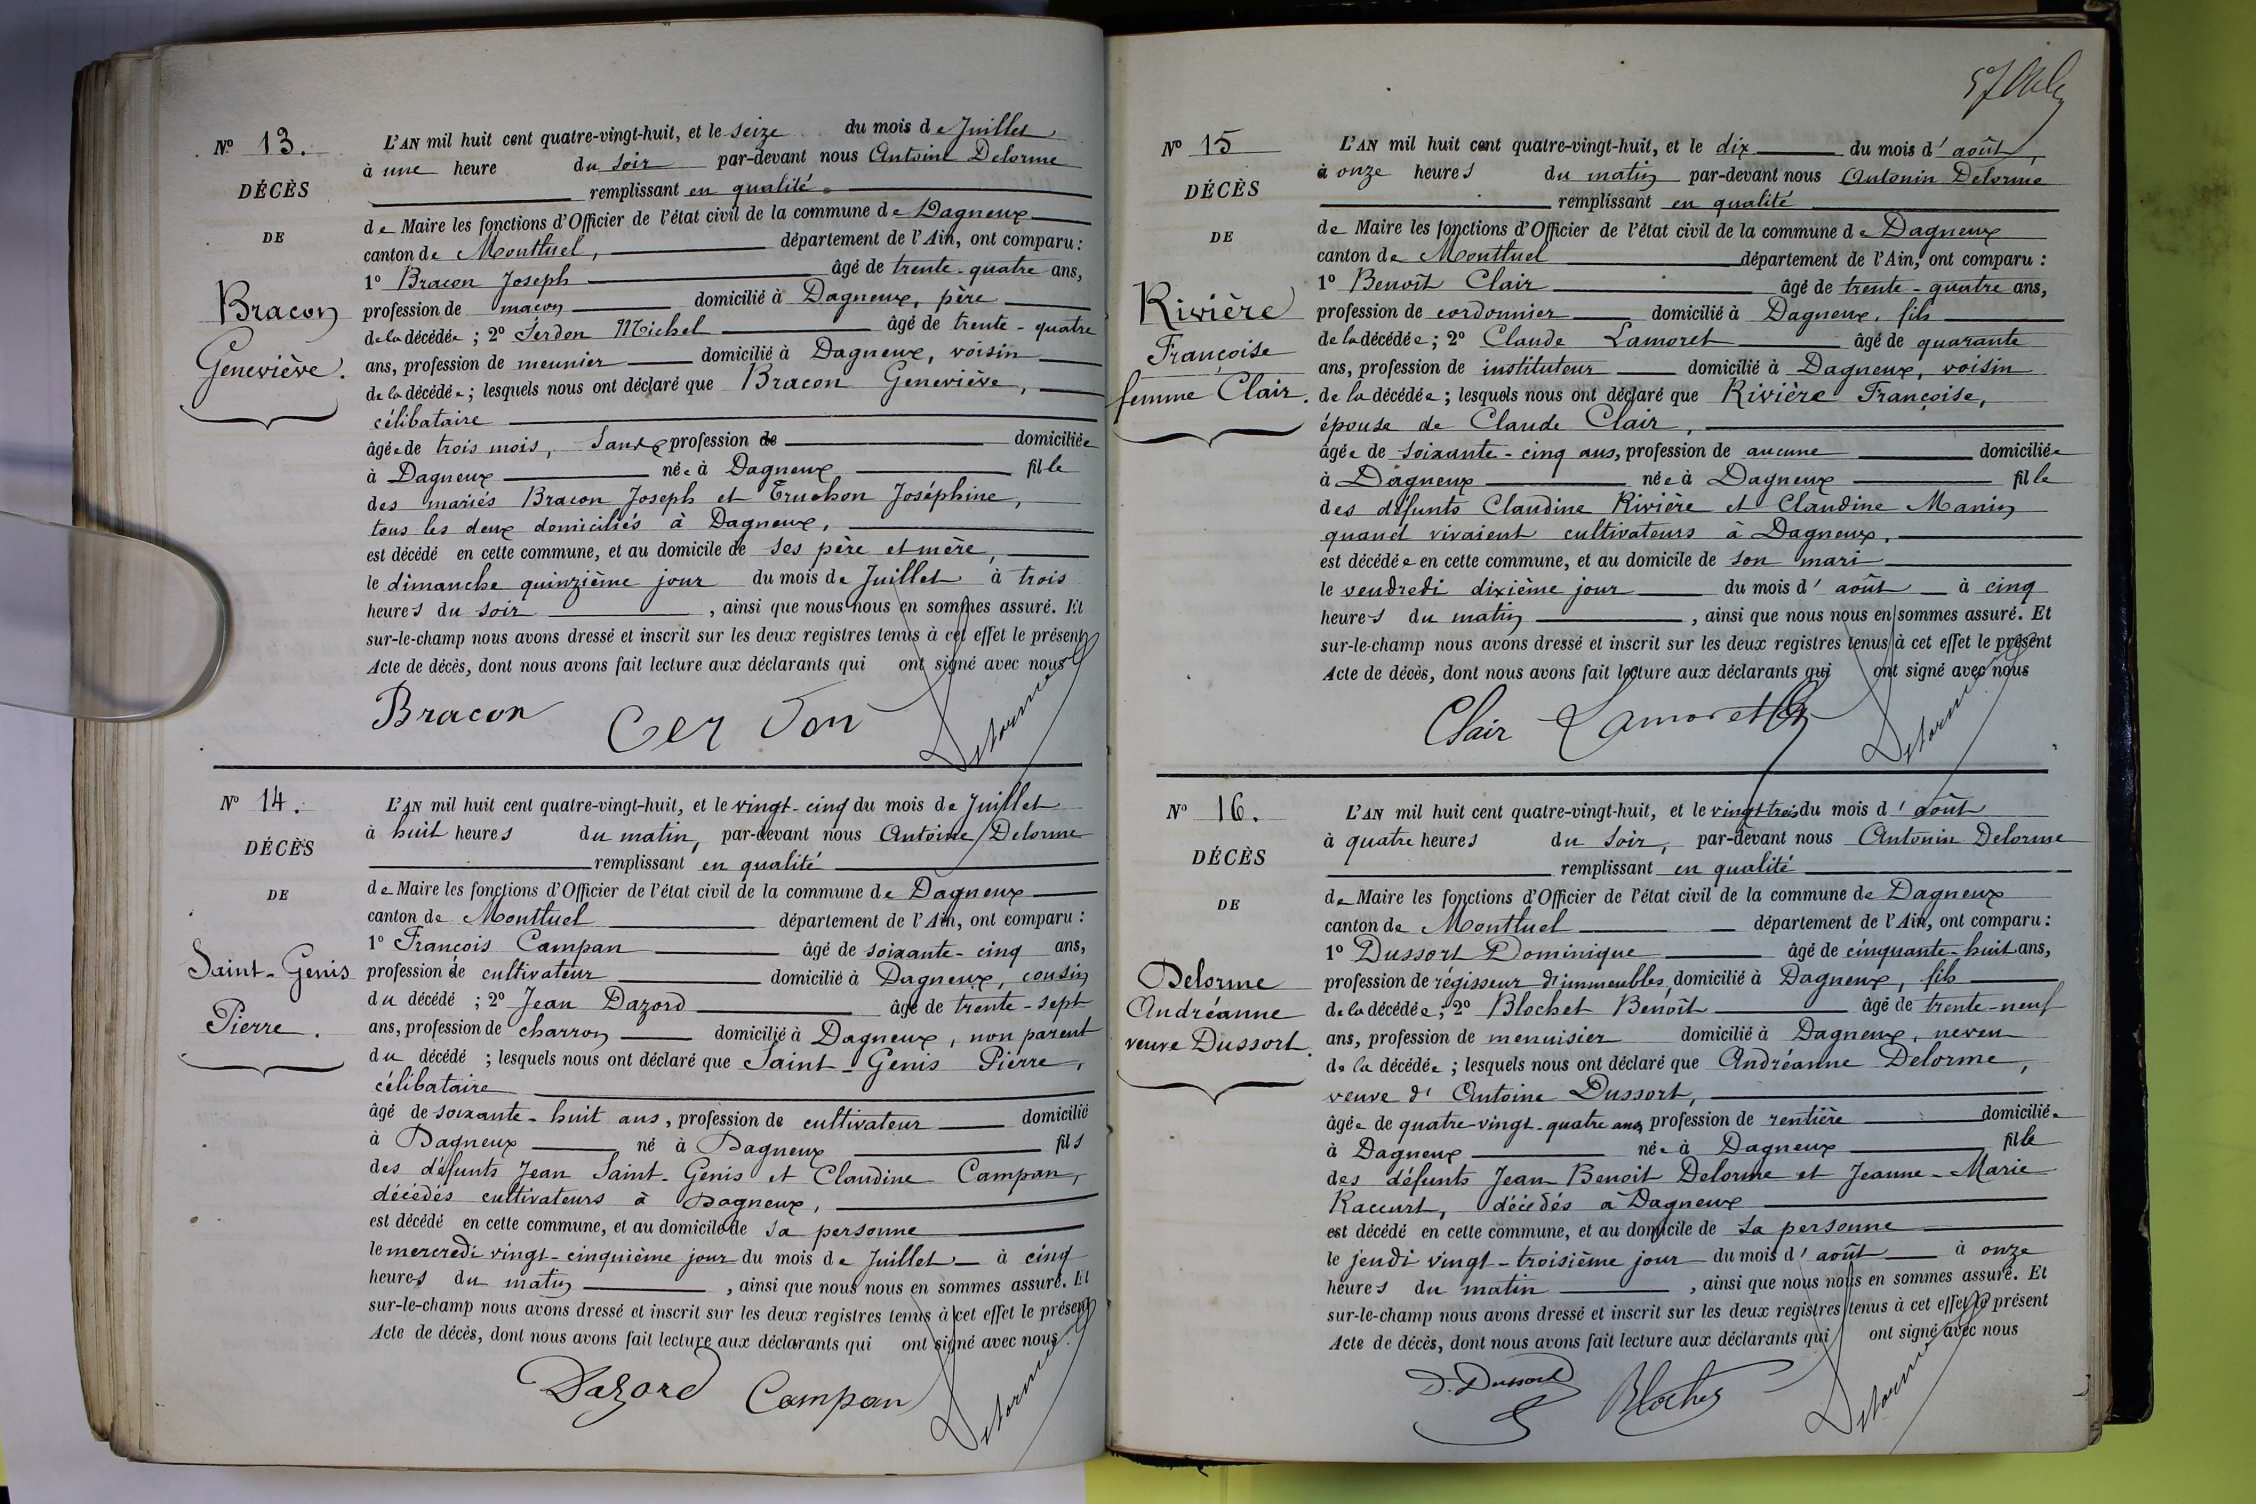 Nº 13.
DÉCÈS
DE
Bracon
Geneviève.
L'AN mil huit cent quatre-vingt-huit, et le seize du mois de Juillet
à une heure du soir par-devant nous Antoine Delorme
remplissant en qualité
de Maire les fonctions d'Officier de l'état civil de la commune de Dagneux
canton de Montluel, département de l'Ain, ont comparu :
1º Bracon Joseph âgé de trente-quatre ans,
profession de maçon domicilié à Dagneux, père
de la décédée ; 2º Serdon Michel âgé de trente-quatre
ans, profession de meunier domicilié à Dagneux, voisin
de la décédée ; lesquels nous ont déclaré que Bracon Geneviève,
célibataire
âgée de trois mois, sans profession de domiciliée
à Dagneux née à Dagneux fille
des mariés Bracon Joseph et Truchon Joséphine,
tous les deux domiciliés à Dagneux,
est décédé en cette commune, et au domicile de ses père et mère,
le dimanche quinzième jour du mois de Juillet à trois
heures du soir, ainsi que nous nous en sommes assuré. Et
sur-le-champ nous avons dressé et inscrit sur les deux registres tenus à cet effet le présent
Acte de décès, dont nous avons fait lecture aux déclarants qui ont signé avec nous
Bracon Cerdon Delorme
Nº 14.
DÉCÈS
DE
Saint-Genis
Pierre.
L'AN mil huit cent quatre-vingt-huit, et le vingt-cinq du mois de Juillet
à huit heures du matin, par-devant nous Antoine Delorme
remplissant en qualité
de Maire les fonctions d'Officier de l'état civil de la commune de Dagneux
canton de Montluel département de l'Ain, ont comparu :
1º François Campan âgé de soixante-cinq ans,
profession de cultivateur domicilié à Dagneux, cousin
du décédé ; 2º Jean Dazord âgé de trente-sept
ans, profession de charron domicilié à Dagneux, non parent
du décédé ; lesquels nous ont déclaré que Saint-Genis Pierre,
célibataire
âgé de soixante-huit ans, profession de cultivateur domicilié
à Dagneux né à Dagneux fils
des défunts Jean Saint-Genis et Claudine Campan,
décédés cultivateurs à Dagneux,
est décédé en cette commune, et au domicile de sa personne
le mercredi vingt-cinquième jour du mois de Juillet à cinq
heures du matin, ainsi que nous nous en sommes assuré. Et
sur-le-champ nous avons dressé et inscrit sur les deux registres tenus à cet effet le présent
Acte de décès, dont nous avons fait lecture aux déclarants qui ont signé avec nous.
Dazord Campan Delorme
57
Nº 15
DÉCÈS
DE
Rivière
Françoise
femme Clair.
L'AN mil huit cent quatre-vingt-huit, et le dix du mois d'août,
à onze heures du matin par-devant nous Antonin Delorme
remplissant en qualité
de Maire les fonctions d'Officier de l'état civil de la commune de Dagneux
canton de Montluel département de l'Ain, ont comparu :
1º Benoît Clair âgé de trente-quatre ans,
profession de cordonnier domicilié à Dagneux, fils
de la décédée ; 2º Claude Lamoret âgé de quarante
ans, profession de instituteur domicilié à Dagneux, voisin
de la décédée ; lesquels nous ont déclaré que Rivière Françoise,
épouse de Claude Clair,
âgée de soixante-cinq ans, profession de aucune domiciliée
à Dagneux née à Dagneux fille
des défunts Claudine Rivière et Claudine Manin
quand vivaient cultivateurs à Dagneux,
est décédée en cette commune, et au domicile de son mari
le vendredi dixième jour du mois d'août à cinq
heures du matin, ainsi que nous nous en sommes assuré. Et
sur-le-champ nous avons dressé et inscrit sur les deux registres tenus à cet effet le présent
Acte de décès, dont nous avons fait lecture aux déclarants qui ont signé avec nous
Clair Lamoret Delorme
Nº 16.
DÉCÈS
DE
Delorme
Andréanne
veuve Dussort.
L'AN mil huit cent quatre-vingt-huit, et le vingt-trois du mois d'août
à quatre heures du soir, par-devant nous Antonin Delorme
remplissant en qualité
de Maire les fonctions d'Officier de l'état civil de la commune de Dagneux
canton de Montluel département de l'Ain, ont comparu :
1º Dussort Dominique âgé de cinquante-huit ans,
profession de régisseur d'immeubles, domicilié à Dagneux, fils
de la décédée ; 2º Blochet Benoît âgé de trente-neuf
ans, profession de menuisier domicilié à Dagneux, neveu
de la décédée ; lesquels nous ont déclaré que Andréanne Delorme,
veuve d'Antoine Dussort,
âgée de quatre-vingt-quatre ans, profession de rentière domiciliée
à Dagneux née à Dagneux fille
des défunts Jean Benoit Delorme et Jeanne-Marie
Raccurt, décédés à Dagneux
est décédé en cette commune, et au domicile de sa personne
le jeudi vingt-troisième jour du mois d'août à onze
heures du matin, ainsi que nous nous en sommes assuré. Et
sur-le-champ nous avons dressé et inscrit sur les deux registres tenus à cet effet le présent
Acte de décès, dont nous avons fait lecture aux déclarants qui ont signé avec nous
D. Dussort Blochet Delorme